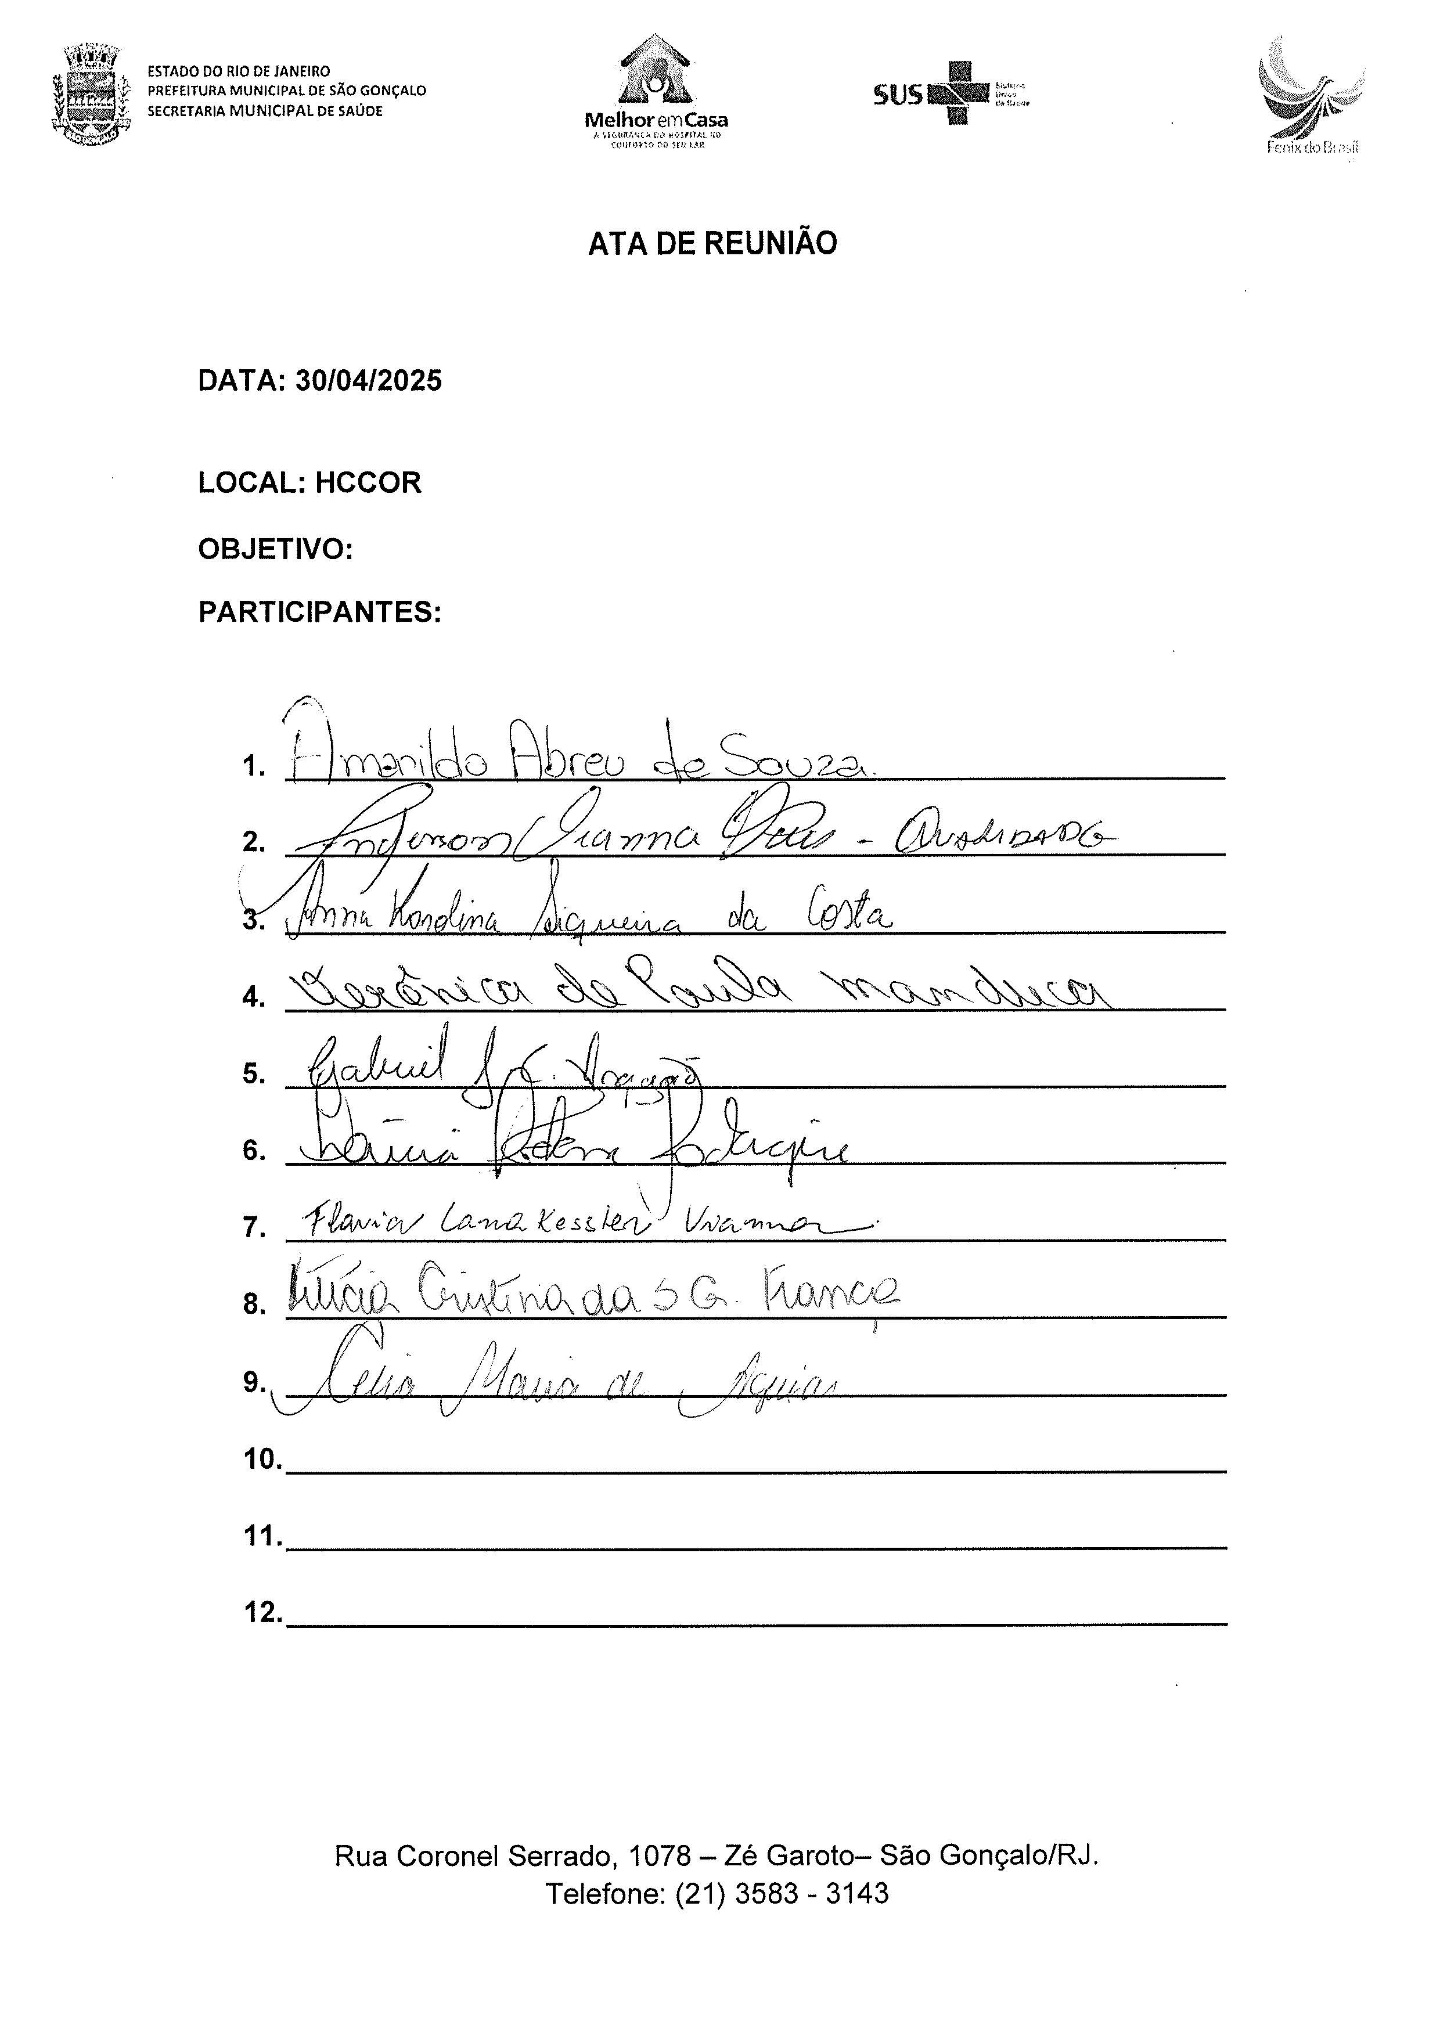 ESTADO DO RIO DE JANEIRO
PREFEITURA MUNICIPAL DE SÃO GONÇALO
SECRETARIA MUNICIPAL DE SAÚDE
Melhor em Casa
A SEGURANÇA DO HOSPITAL NO
CONFORTO DO SEU LAR
SUS
Sistema
Único
de Saúde
Fenix do Brasil
ATA DE REUNIÃO
DATA: 30/04/2025
LOCAL: HCCOR
OBJETIVO:
PARTICIPANTES:
1. Amarildo Abreu de Souza.
2. Anderson Vianna - QUALIDADE
3. Anna Karolina Siqueira da Costa
4. Verônica de Paula Manduca
5. Gabriel Aragão
6.
7. Flavia Lana Kessler Vianna
8. Letícia Cristina da S G. França
9. Celia Maria de Aguiar
10.
11.
12.
Rua Coronel Serrado, 1078 – Zé Garoto– São Gonçalo/RJ.
Telefone: (21) 3583 - 3143